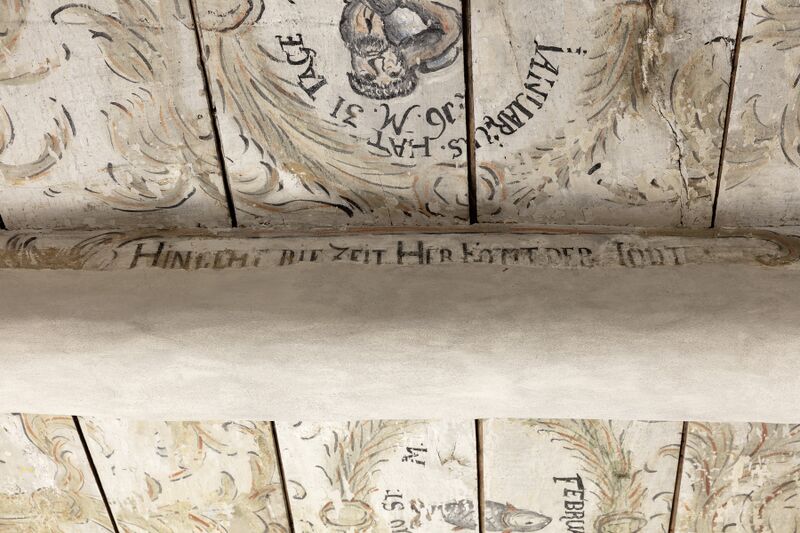 IANUARIUS. HAT M. 31 TAGE
HINGEHT DIE ZEIT HER KOMT DER TODT
M.
FEBRU